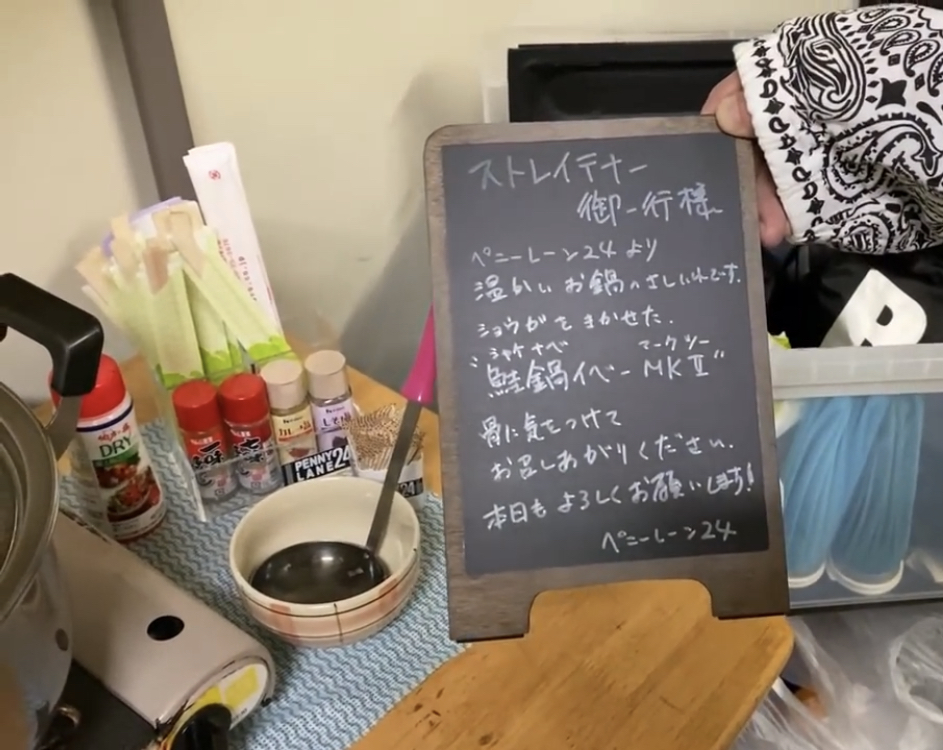 ストレイテナー
御一行様
ペニーレーン24より
温かい お鍋のさしいれです。
ショウがをきかせた。
シャケナベ マークツー
"鮭鍋イベーMKⅡ"
骨に気をつけて
お召しあがりください。
本日もよろしくお願いします!
ペニーレーン24
DRY
一味
PENNY
LANE24
24